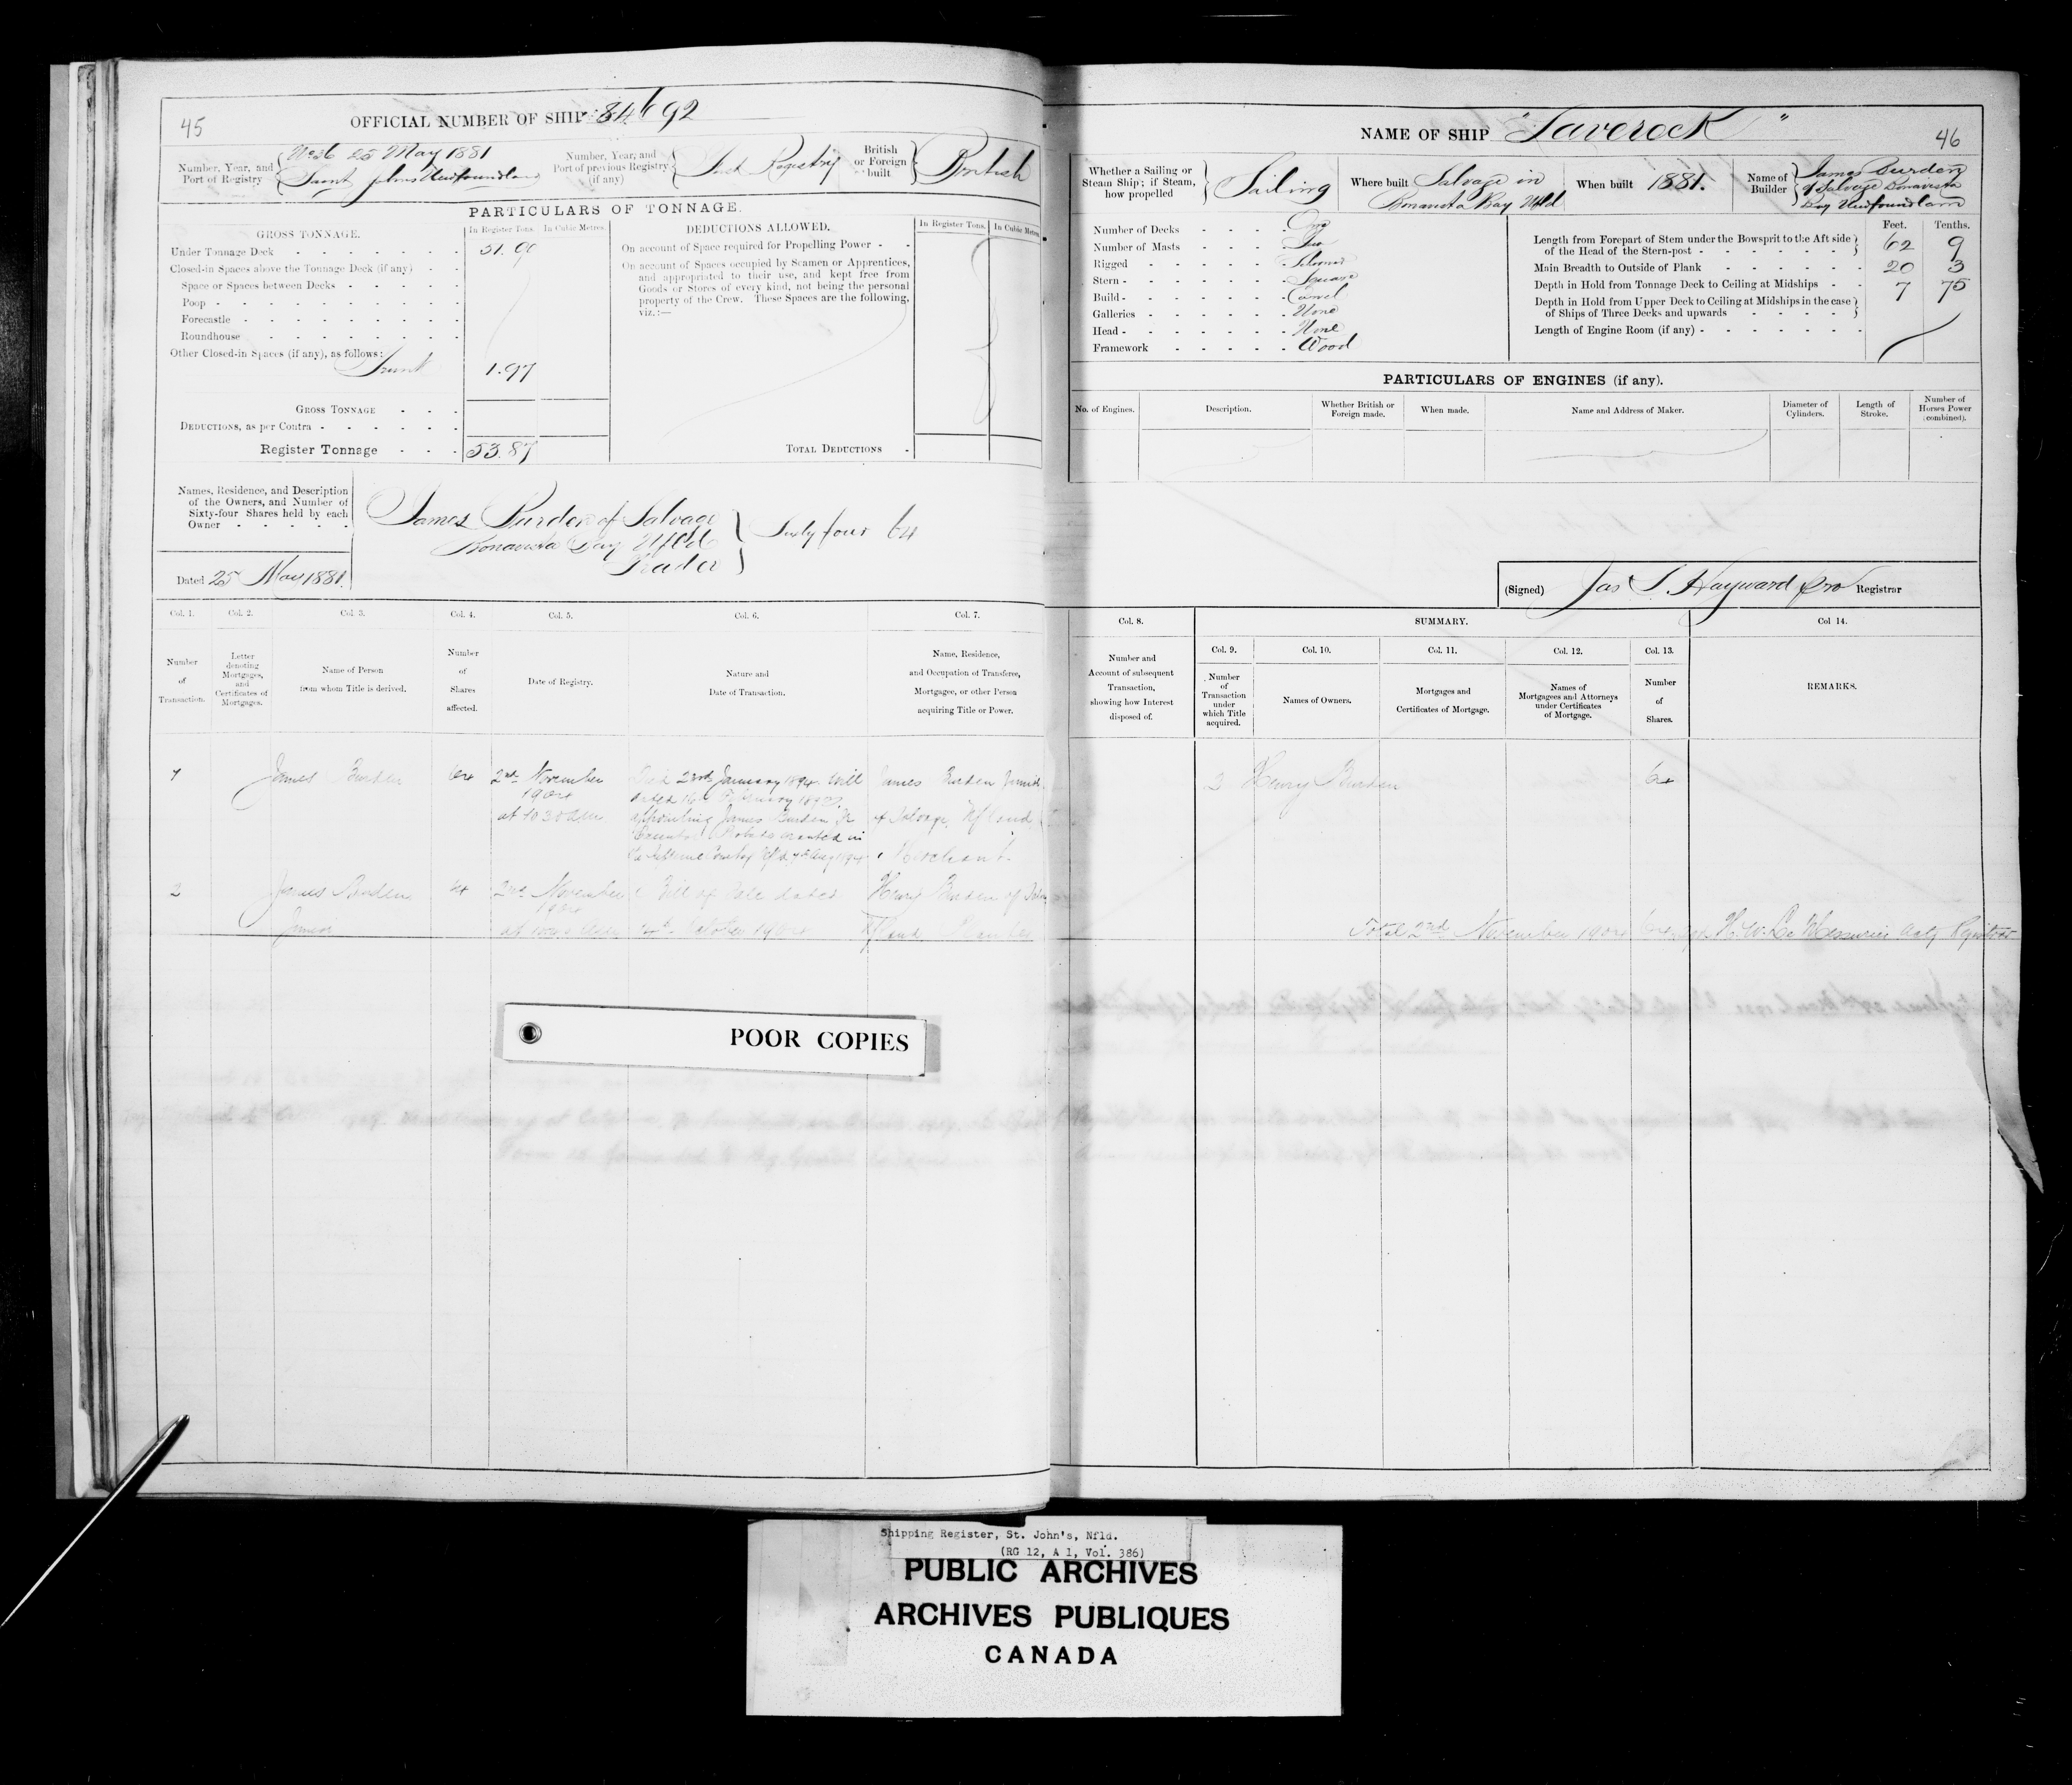 45
OFFICIAL NUMBER OF SHIP 84692
Number, Year, and
Port of Registry
No 36 25 May 1881
Saint Johns Newfoundland
Number, Year, and
Port of previous Registry
(if any)
First Registry
British
or Foreign
built
British
PARTICULARS OF TONNAGE.
GROSS TONNAGE.
In Register Tons.
In Cubic Metres.
Under Tonnage Deck
Closed-in Spaces above the Tonnage Deck (if any)
Space or Spaces between Decks
Poop
Forecastle
Roundhouse
Other Closed-in Spaces (if any), as follows:
Trunk
1.97
GROSS TONNAGE
DEDUCTIONS, as per Contra
Register Tonnage
53.87
DEDUCTIONS ALLOWED.
In Register Tons.
In Cubic Metres.
On account of Space required for Propelling Power
On account of Spaces occupied by Seamen or Apprentices,
and appropriated to their use, and kept free from
Goods or Stores of every kind, not being the personal
property of the Crew. These Spaces are the following,
viz.:—
TOTAL DEDUCTIONS
Names, Residence, and Description
of the Owners, and Number of
Sixty-four Shares held by each
Owner
James Burden of Salvage
Bonavista Bay Nfld
Trader
Sixty four 64
Dated 25 May 1881.
Col. 1.
Col. 2.
Col. 3.
Col. 4.
Col. 5.
Col. 6.
Col. 7.
Number
of
Transaction.
Letter
denoting
Mortgages,
and
Certificates of
Mortgages.
Name of Person
from whom Title is derived.
Number
of
Shares
affected.
Date of Registry.
Nature and
Date of Transaction.
Name, Residence,
and Occupation of Transferee,
Mortgagee, or other Person
acquiring Title or Power.
1
James Burden
64
2nd November
1904
at 10 30 am
Died 23rd January 1894. Will
dated 16th February 1892
appointing James Burden Jr
Executor. Probate granted in
James Burden Junior
of Salvage, Nfland
Merchant.
2
James Burden
Junior
64
2nd November
1904
Bill of Sale dated
October 1904
Henry Burden of
Nfland Planter
46
NAME OF SHIP "Laverock"
Whether a Sailing or
Steam Ship; if Steam,
how propelled
Sailing
Where built
Salvage in
Bonavista Bay Nfld
When built 1881.
Name of
Builder
James Burden
of Salvage Bonavista
Bay Newfoundland
Number of Decks One
Number of Masts Two
Rigged Schooner
Stern Square
Build Carvel
Galleries None
Head None
Framework Wood
Feet. Tenths.
Length from Forepart of Stem under the Bowsprit to the Aft side
of the Head of the Stern-post 62 9
Main Breadth to Outside of Plank 20 3
Depth in Hold from Tonnage Deck to Ceiling at Midships 7 75
Depth in Hold from Upper Deck to Ceiling at Midships in the case
of Ships of Three Decks and upwards
Length of Engine Room (if any)
PARTICULARS OF ENGINES (if any).
No. of Engines.
Description.
Whether British or
Foreign made.
When made.
Name and Address of Maker.
Diameter of
Cylinders.
Length of
Stroke.
Number of
Horses Power
(combined).
(Signed) Jas S. Hayward pro Registrar
Col. 8.
SUMMARY.
Col 14.
Number and
Account of subsequent
Transaction,
showing how Interest
disposed of.
Col. 9.
Col. 10.
Col. 11.
Col. 12.
Col. 13.
Number
of
Transaction
under
which Title
acquired.
Names of Owners.
Mortgages and
Certificates of Mortgage.
Names of
Mortgagees and Attorneys
under Certificates
of Mortgage.
Number
of
Shares.
REMARKS.
2 Henry Burden 64
Total 2nd November 1904 64 H. W. Le Messurier Actg Registrar
POOR COPIES
Shipping Register, St. John's, Nfld.
(RG 12, A 1, Vol. 386)
PUBLIC ARCHIVES
ARCHIVES PUBLIQUES
CANADA